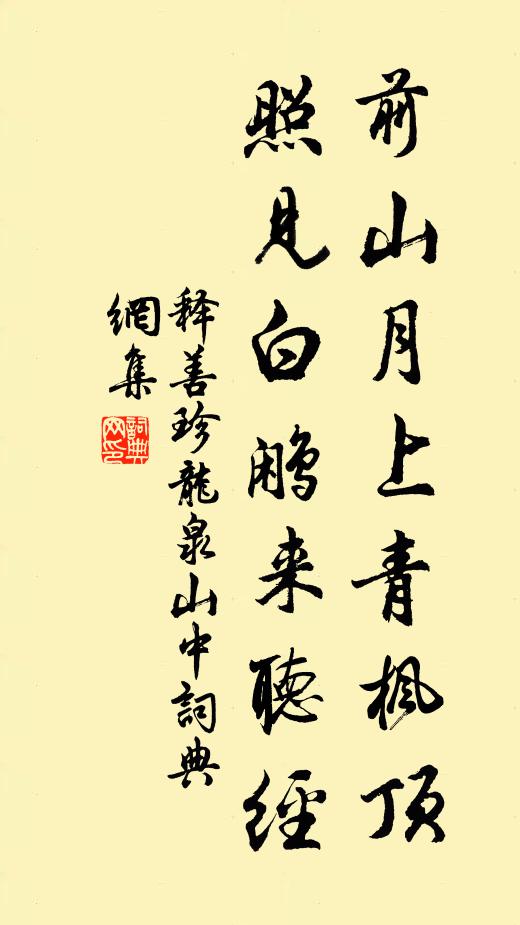 前山月上青枫顶
照见白鹇来聽經
释善珍龍泉山中詞典
網集
詞典
网印